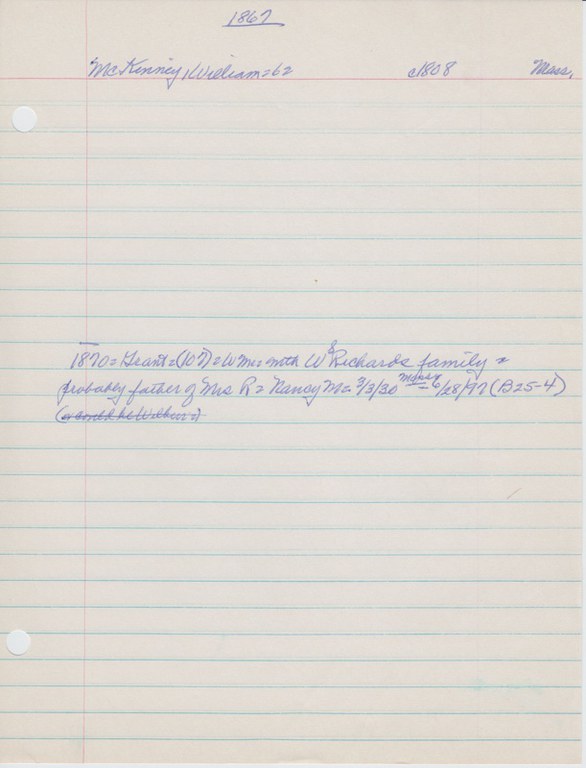 1867
McKenney, William = 62 c1808 Mass.
1870 = Grant = (107) = Wm = with W S Richards family =
probably father of Mrs R = Nancy M = 3/3/30 Mass = 6/28/97 (B25-4)
(or could be Wilbur =)